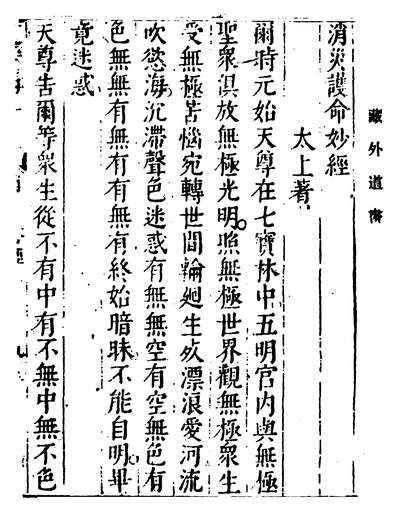 藏外道書
消災護命妙經
太上著
爾時元始天尊在七寶林中五明宮內與無極
聖衆俱放無極光明照無極世界觀無極衆生
受無極苦惱宛轉世間輪廻生死漂浪愛河流
吹慾海沉滯聲色迷惑有無無空有空無色有
色無無有無有有無有終始暗昧不能自明畢
竟迷惑
天尊吿爾等衆生從不有中有不無中無不色